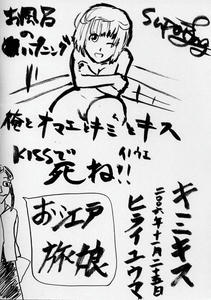 お風呂
の
ハプニング
俺とオマエとキミとキス
KISSで
死ね!!
キミキス
二〇〇六年十一月二十五日
ヒライユウマ
お江戸
旅娘